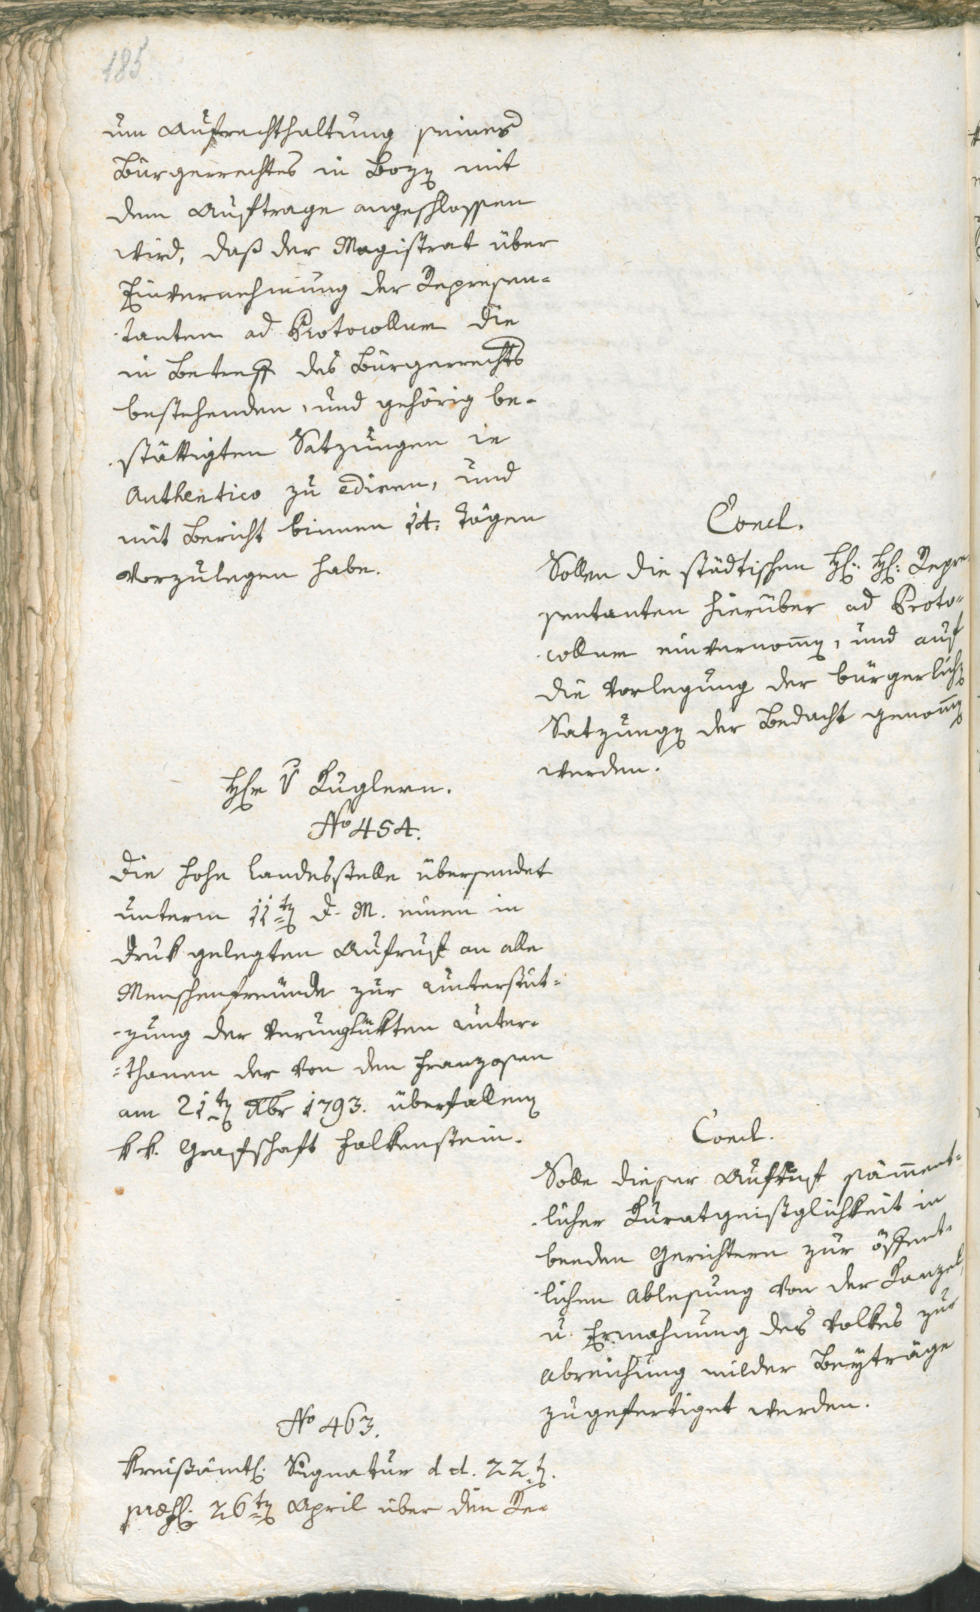 185
um Aufrechthaltung seines
Bürgerrechtes in Bozen mit
dem Auftrage angeschlossen
wird, daß der Magistrat über
Einvernehmung der Represen-
tanten ad Protocollum die
in Betreff des Bürgerrechts
bestehenden, und gehörig be-
stättigten Satzungen in
Authentico zu edieren, und
mit Bericht binnen 14. Tägen
vorzulegen habe.
Concl.
Sollen die städtischen H: H: Repre-
sentanten hierüber ad Proto-
collum einvernomen, und auf
die Vorlegung der bürgerlichen
Satzungen der Bedacht genomen
werden.
Hr v Kuglern.
No 454.
Die hohe Landesstelle übersendet
unterm 11ten d. M. einen in
Druk gelegten Aufruf an alle
Menschenfreünde zur Unterstüt-
zung der verunglükten Unter-
thanen der von den Franzosen
am 21ten Xbr 1793. überfallenen
k k. Grafschaft Falkenstein.
Concl.
Solle dieser Aufruf sämment-
licher Kuratgeistglichkeit in
beeden Gerichtern zur öffent-
lichen Ablesung von der Kanzel,
u. Ermahnung des Volkes zur
Abreichung milder Beyträge
zugefertiget werden.
No 463.
Kreißämtl: Signatur d d. 22t.
præs: 26ten April über den Re-